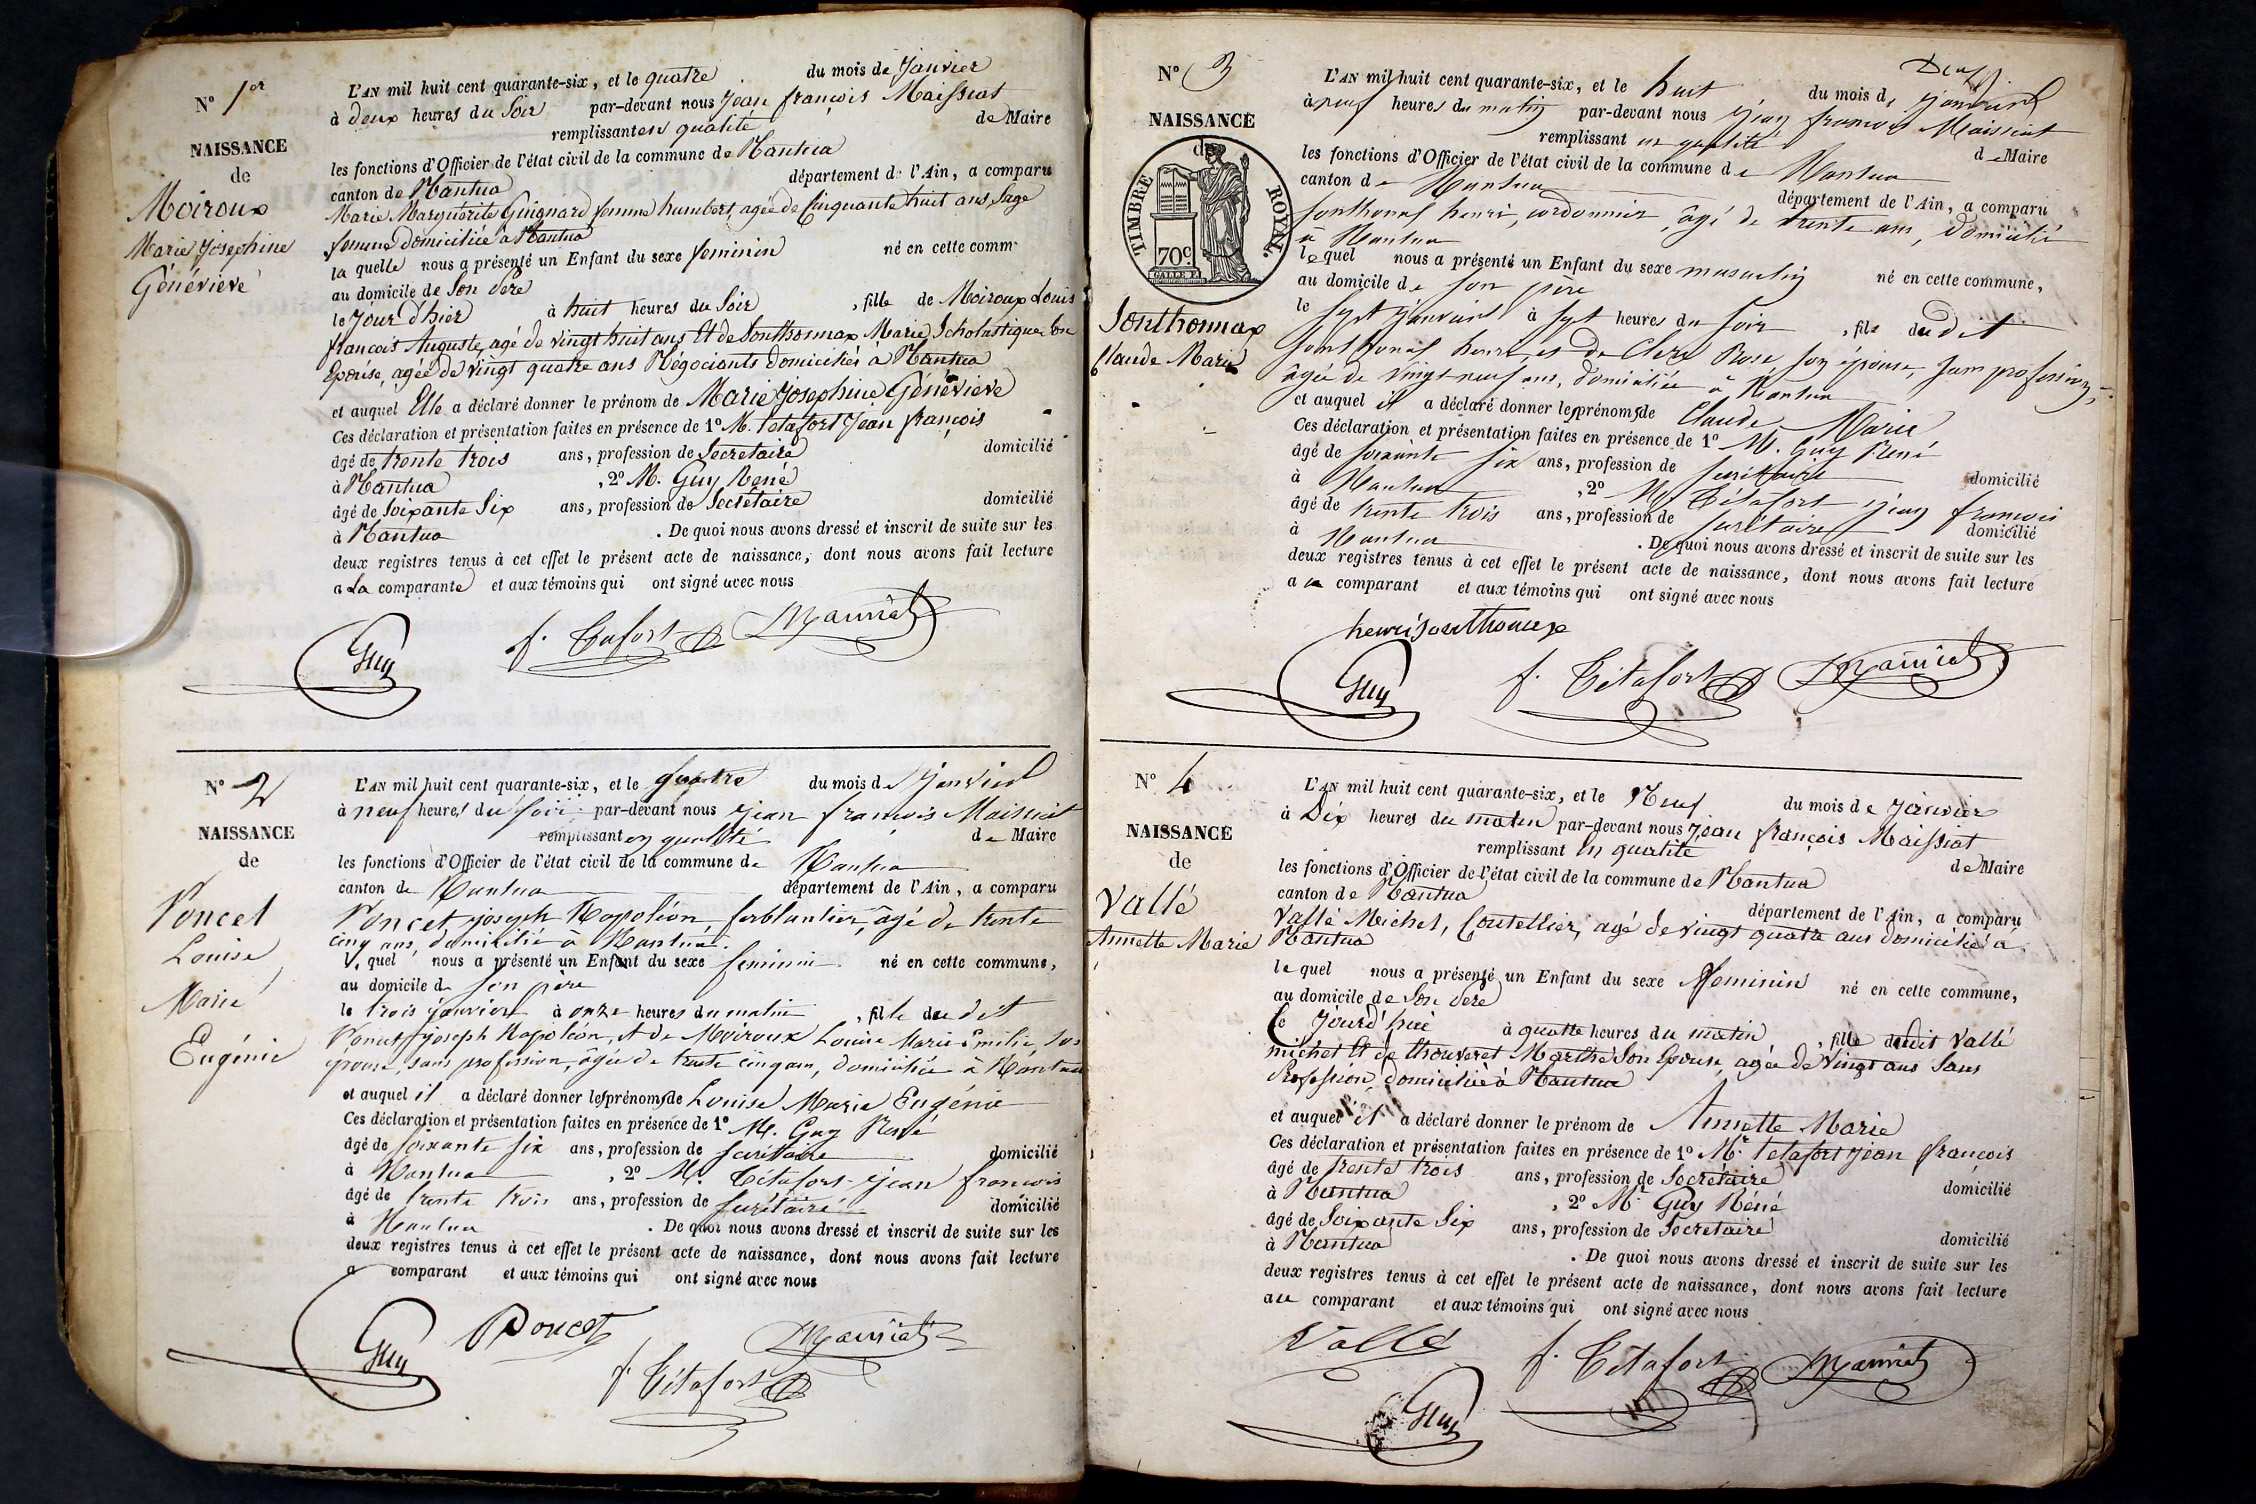 N° 1er
NAISSANCE
de
Moiroux
Marie Josephine
Généviève
L'AN mil huit cent quarante-six, et le quatre du mois de Janvier
à deux heures du Soir par-devant nous Jean françois Maissiat
remplissant en qualité de Maire
les fonctions d'Officier de l'état civil de la commune de Nantua
canton de Nantua département de l'Ain, a comparu
Marie Marguérite Guignard femme humbert, agée de Cinquante huit ans, Sage
femme domiciliée à Nantua
la quelle nous a présenté un Enfant du sexe feminin né en cette comm
au domicile de Son Père
le Jour d'hier à huit heures du Soir, fille de Moiroux Louis
françois Auguste, agé de vingt huit ans Et de Sonthonnax Marie Scholastique Son
Epouse, agée de vingt quatre ans Négociants domiciliés à Nantua
et auquel Elle a déclaré donner le prénom de Marie Josephine Généviève
Ces déclaration et présentation faites en présence de 1° M. Tétafort Jean françois
âgé de trente trois ans, profession de Secretaire domicilié
à Nantua, 2° M. Guy René
âgé de Soixante Six ans, profession de Secrétaire domicilié
à Nantua. De quoi nous avons dressé et inscrit de suite sur les
deux registres tenus à cet effet le présent acte de naissance, dont nous avons fait lecture
a La comparante et aux témoins qui ont signé avec nous
Guy f. Tétafort Maissiat
N° 2
NAISSANCE
de
Poncet
Louise
Marie
Eugénie
L'AN mil huit cent quarante-six, et le quatre du mois de Janvier
à neuf heures du soir par-devant nous Jean françois Maissiat
remplissant en qualité de Maire
les fonctions d'Officier de l'état civil de la commune de Nantua
canton de Nantua département de l'Ain, a comparu
Poncet joseph Napoléon, ferblantier, âgé de trente
cinq ans, domicilié à Nantua.
le quel nous a présenté un Enfant du sexe feminin né en cette commune,
au domicile de son père
le trois janvier à onze heures du matin, fille du dit
Poncet joseph Napoléon, et de Moiroux Louise Marie Emilie, son
épouse, sans profession, âgée de trente cinq ans, domiciliée à Nantua
et auquel il a déclaré donner les prénoms de Louise Marie Eugénie
Ces déclaration et présentation faites en présence de 1° M. Guy René
âgé de soixante six ans, profession de secrétaire domicilié
à Nantua, 2° M. Tétafort jean françois
âgé de trente trois ans, profession de secrétaire domicilié
à Nantua. De quoi nous avons dressé et inscrit de suite sur les
deux registres tenus à cet effet le présent acte de naissance, dont nous avons fait lecture
a comparant et aux témoins qui ont signé avec nous
Guy Poncet f. Tétafort Maissiat
Deux
N° 3
NAISSANCE
de
TIMBRE ROYAL.
70c.
Sonthonnax
Claude Marie
L'AN mil huit cent quarante-six, et le huit du mois de janvier
à neuf heures du matin par-devant nous jean françois Maissiat
remplissant en qualité de Maire
les fonctions d'Officier de l'état civil de la commune de Nantua
canton de Nantua département de l'Ain, a comparu
Sonthonax henri, cordonnier, âgé de trente ans, domicilié
à Nantua
le quel nous a présenté un Enfant du sexe masculin né en cette commune,
au domicile de son père
le sept janvier à sept heures du soir, fils du dit
Sonthonax henri, et de Clerc Rose son épouse, sans profession,
âgée de vingt neuf ans, domiciliée à Nantua
et auquel il a déclaré donner les prénoms de Claude Marie
Ces déclaration et présentation faites en présence de 1° M. Guy René
âgé de soixante six ans, profession de secrétaire domicilié
à Nantua, 2° M. Tétafort jean françois
âgé de trente trois ans, profession de secrétaire domicilié
à Nantua. De quoi nous avons dressé et inscrit de suite sur les
deux registres tenus à cet effet le présent acte de naissance, dont nous avons fait lecture
a comparant et aux témoins qui ont signé avec nous
henri Sonthonnax
Guy f. Tétafort Maissiat
N° 4
NAISSANCE
de
Vallé
Annette Marie
L'AN mil huit cent quarante-six, et le Neuf du mois de Janvier
à Dix heures du matin par-devant nous Jean françois Maissiat
remplissant en qualité de Maire
les fonctions d'Officier de l'état civil de la commune de Nantua
canton de Nantua département de l'Ain, a comparu
Vallé Michel, Coutellier, agé de vingt quatre ans domicilié à
Nantua
le quel nous a présenté un Enfant du sexe feminin né en cette commune,
au domicile de Son Père
le Jourd'hui à quatre heures du matin, fille dudit Vallé
michel Et de thouveret Marthe Son Epouse, agée de Vingt ans Sans
Profession, domiciliée à Nantua
et auquel il a déclaré donner le prénom de Annette Marie
Ces déclaration et présentation faites en présence de 1° Mr. Tétafort Jean françois
âgé de trente trois ans, profession de Secrétaire domicilié
à Nantua, 2° Mr Guy Réné
âgé de Soixante Six ans, profession de Secretaire domicilié
à Nantua. De quoi nous avons dressé et inscrit de suite sur les
deux registres tenus à cet effet le présent acte de naissance, dont nous avons fait lecture
au comparant et aux témoins qui ont signé avec nous
Vallé f. Tétafort Maissiat
Guy